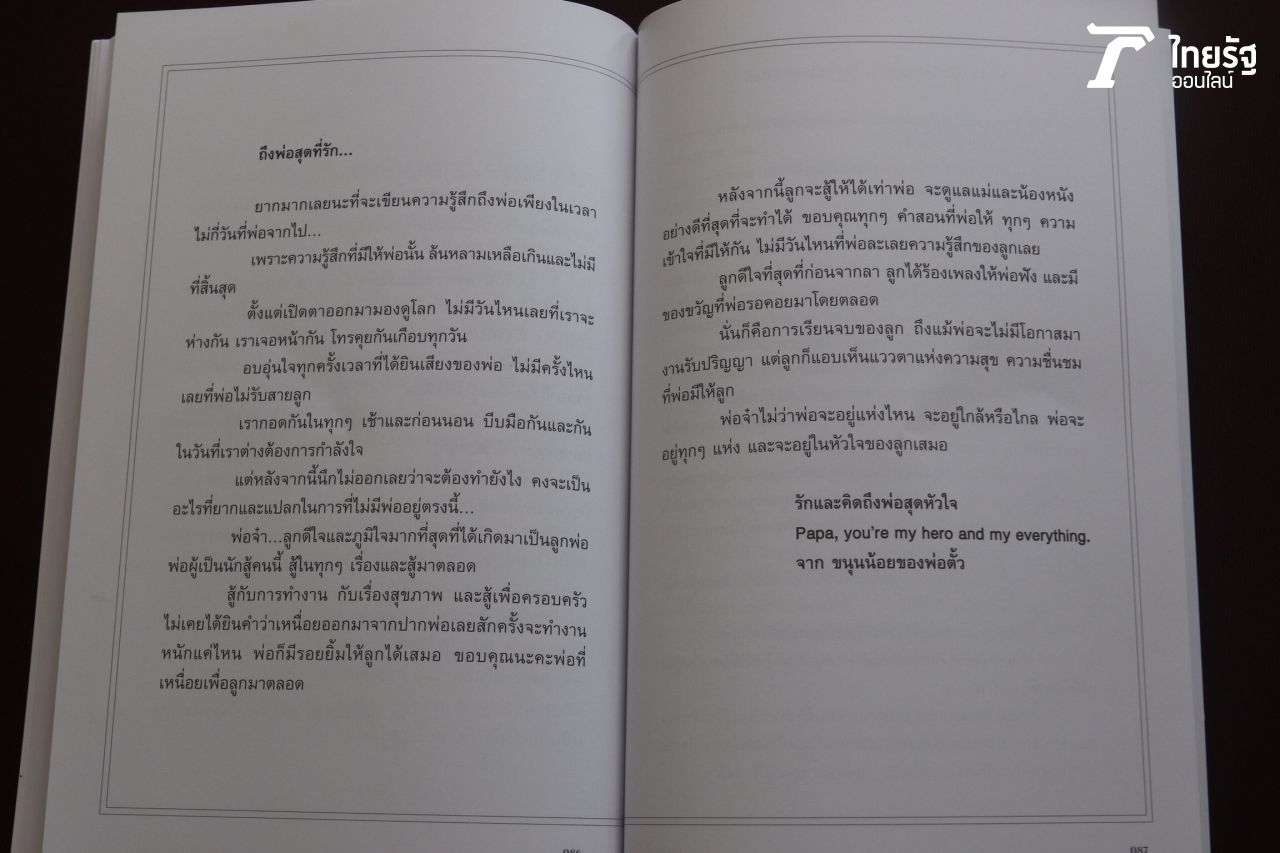 ไทยรัฐ
ออนไลน์
ถึงพ่อสุดที่รัก...
ยากมากเลยนะที่จะเขียนความรู้สึกถึงพ่อเพียงในเวลา
ไม่กี่วันที่พ่อจากไป...
เพราะความรู้สึกที่มีให้พ่อนั้น ล้นหลามเหลือเกินและไม่มี
ที่สิ้นสุด
ตั้งแต่เปิดตาออกมามองดูโลก ไม่มีวันไหนเลยที่เราจะ
ห่างกัน เราเจอหน้ากัน โทรคุยกันเกือบทุกวัน
อบอุ่นใจทุกครั้งเวลาที่ได้ยินเสียงของพ่อ ไม่มีครั้งไหน
เลยที่พ่อไม่รับสายลูก
เรากอดกันในทุกๆ เช้าและก่อนนอน บีบมือกันและกัน
ในวันที่เราต่างต้องการกำลังใจ
แต่หลังจากนี้นึกไม่ออกเลยว่าจะต้องทำยังไง คงจะเป็น
อะไรที่ยากและแปลกในการที่ไม่มีพ่ออยู่ตรงนี้...
พ่อจ๋า...ลูกดีใจและภูมิใจมากที่สุดที่ได้เกิดมาเป็นลูกพ่อ
พ่อผู้เป็นนักสู้คนนี้ สู้ในทุกๆ เรื่องและสู้มาตลอด
สู้กับการทำงาน กับเรื่องสุขภาพ และสู้เพื่อครอบครัว
ไม่เคยได้ยินคำว่าเหนื่อยออกมาจากปากพ่อเลยสักครั้งจะทำงาน
หนักแค่ไหน พ่อก็มีรอยยิ้มให้ลูกได้เสมอ ขอบคุณนะคะพ่อที่
เหนื่อยเพื่อลูกมาตลอด
086
หลังจากนี้ลูกจะสู้ให้ได้เท่าพ่อ จะดูแลแม่และน้องหนัง
อย่างดีที่สุดที่จะทำได้ ขอบคุณทุกๆ คำสอนที่พ่อให้ ทุกๆ ความ
เข้าใจที่มีให้กัน ไม่มีวันไหนที่พ่อละเลยความรู้สึกของลูกเลย
ลูกดีใจที่สุดที่ก่อนจากลา ลูกได้ร้องเพลงให้พ่อฟัง และมี
ของขวัญที่พ่อรอคอยมาโดยตลอด
นั่นก็คือการเรียนจบของลูก ถึงแม้พ่อจะไม่มีโอกาสมา
งานรับปริญญา แต่ลูกก็แอบเห็นแววตาแห่งความสุข ความชื่นชม
ที่พ่อมีให้ลูก
พ่อจ๋าไม่ว่าพ่อจะอยู่แห่งไหน จะอยู่ใกล้หรือไกล พ่อจะ
อยู่ทุกๆ แห่ง และจะอยู่ในหัวใจของลูกเสมอ
รักและคิดถึงพ่อสุดหัวใจ
Papa, you're my hero and my everything.
จาก ขนุนน้อยของพ่อตั้ว
087